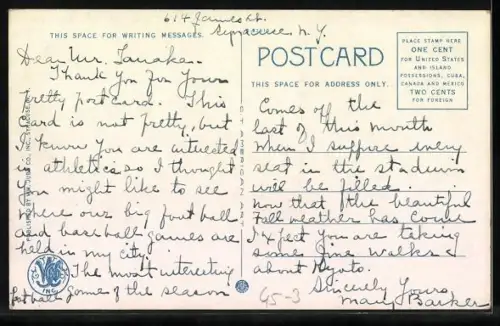 614 James St.
Syracuse N.Y.
THIS SPACE FOR WRITING MESSAGES.
Dear Mr. Tanaka-
Thank You for Your
pretty postcard. This
card is not pretty, but
I know you are interested
in athletics so I thought
you might like to see
where our big foot ball
and baseball games are
held in my city.
The most interesting
foot ball game of the season
POSTCARD
THIS SPACE FOR ADDRESS ONLY.
PLACE STAMP HERE
ONE CENT
FOR UNITED STATES
AND ISLAND
POSSESSIONS, CUBA,
CANADA AND MEXICO
TWO CENTS
FOR FOREIGN
Comes off the
last of this month
when I suppose every
seat in the stadium
will be filled.
now that the beautiful
Fall weather has come
I expect you are taking
some fine walks
about Kyoto.
Sincerely Yours
Mary Barker
INC.
G5-3